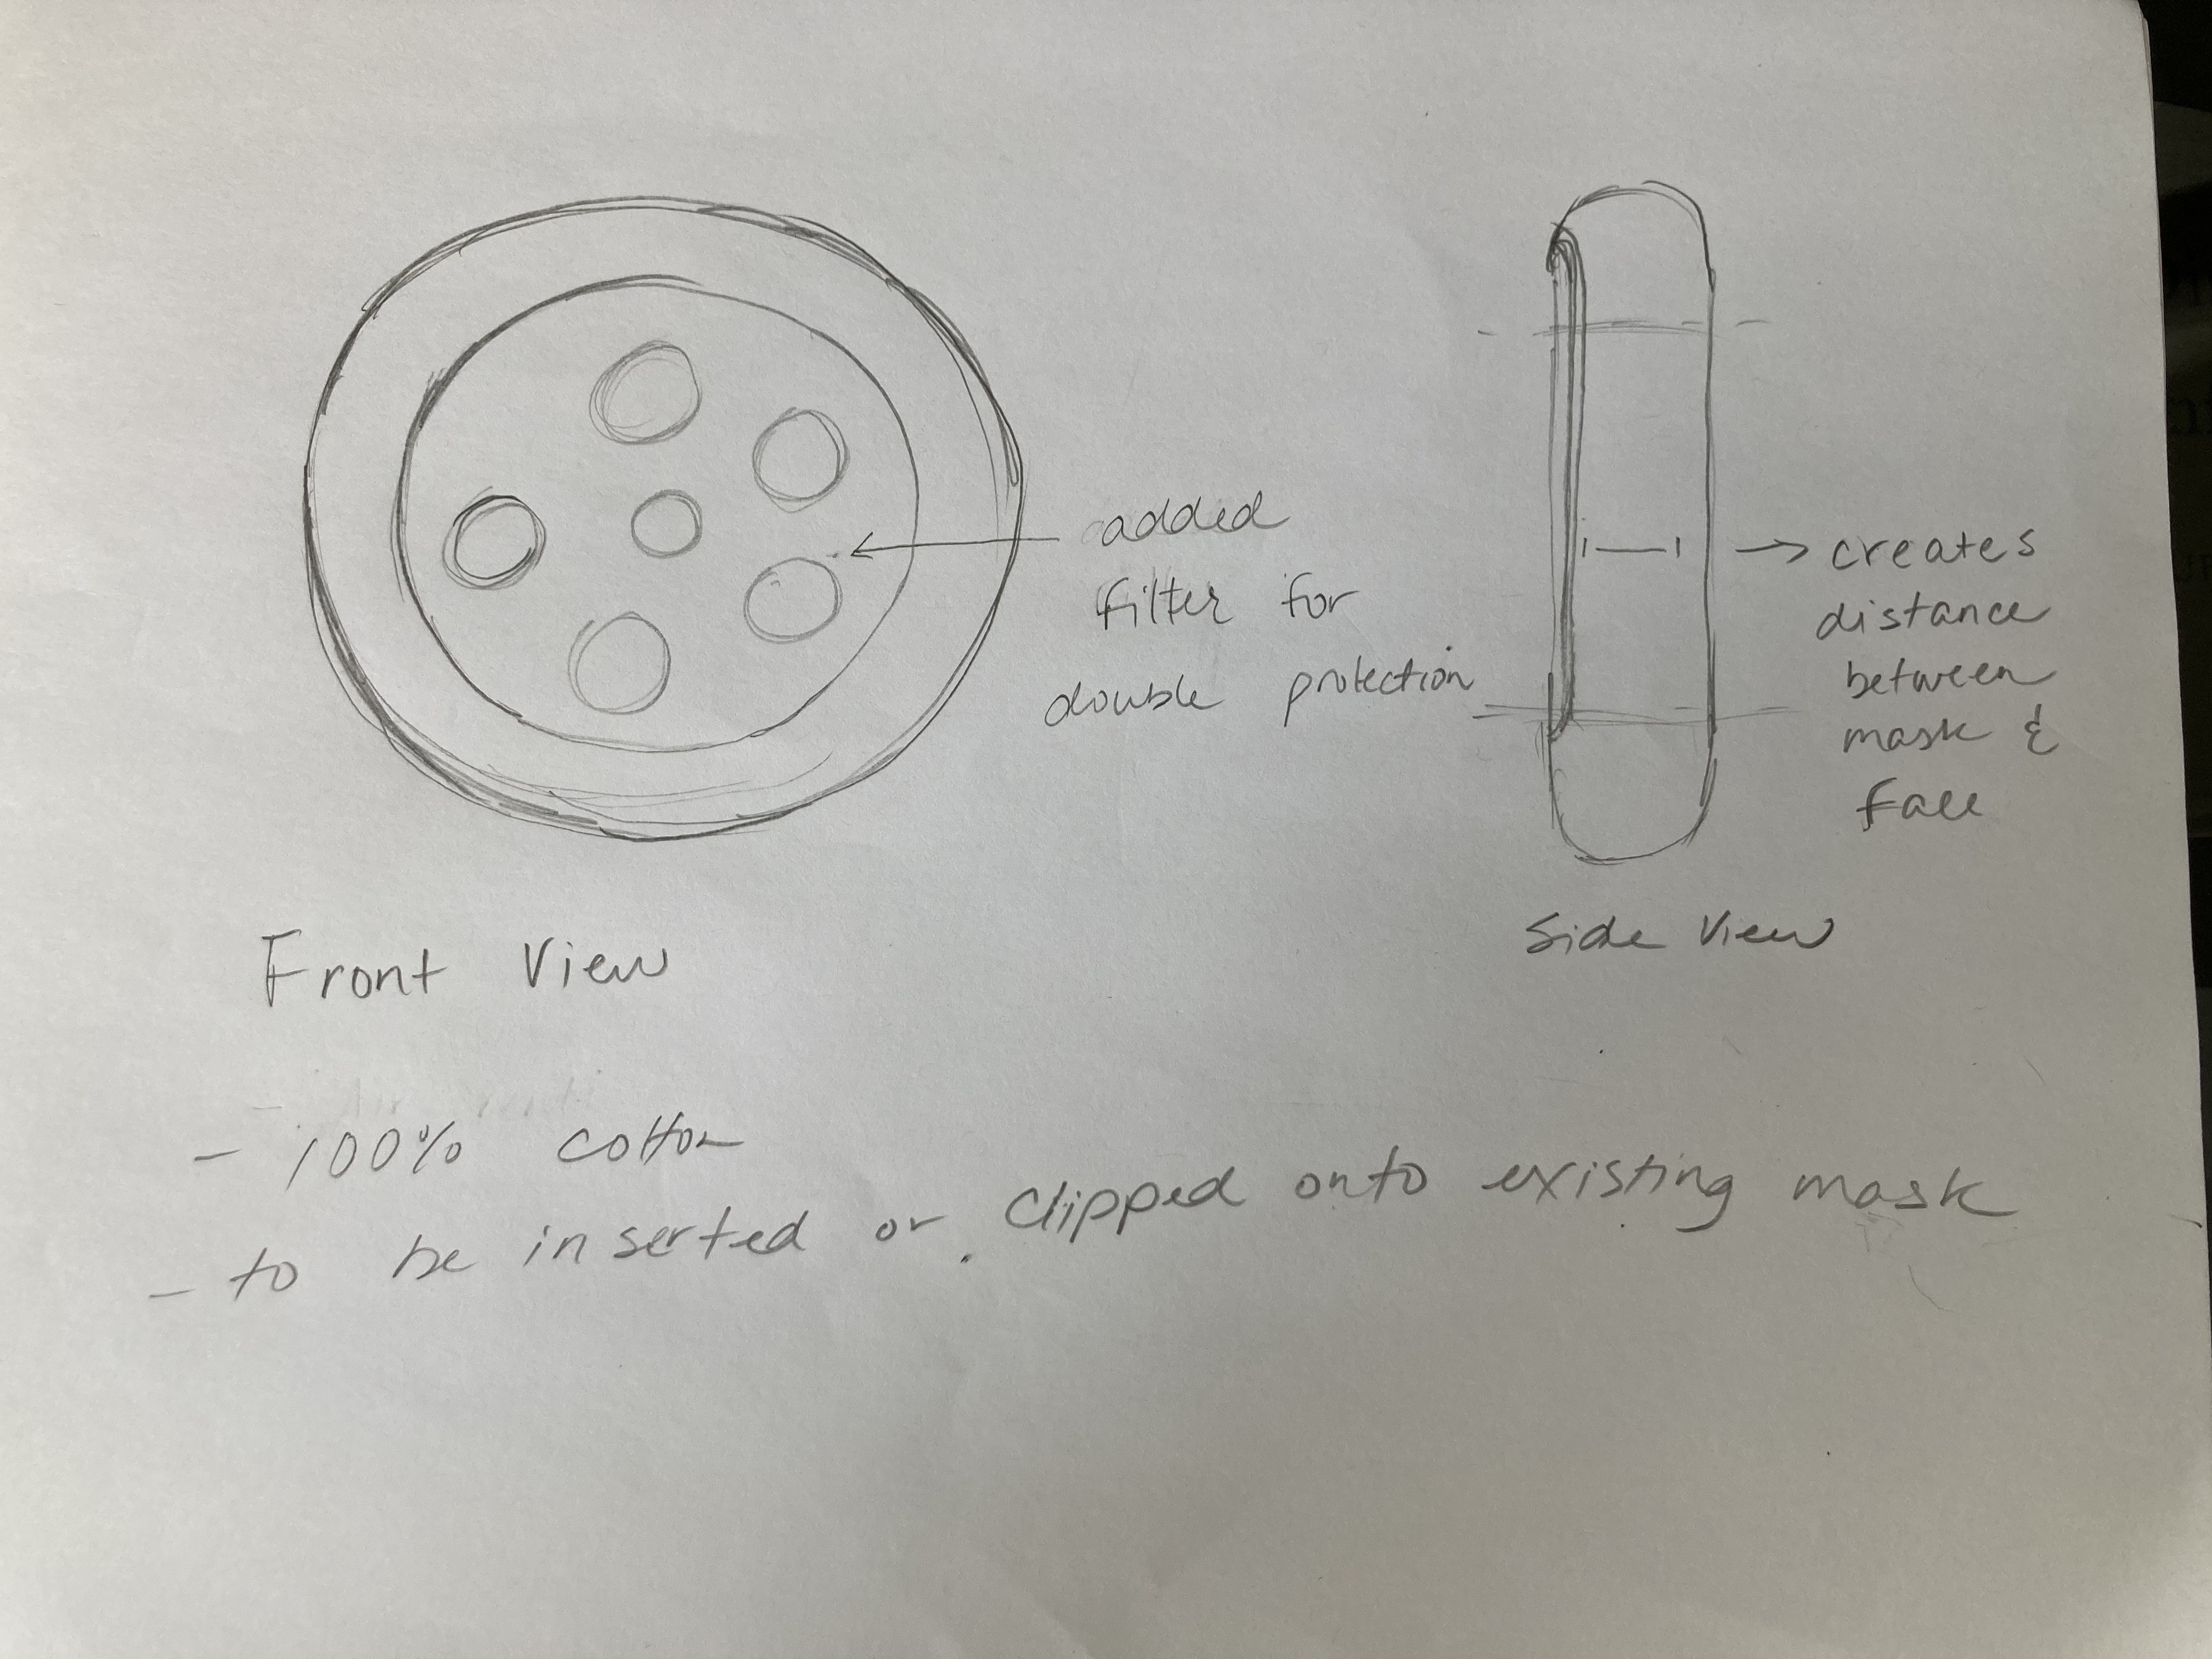 added
filter for
double protection
creates
distance
between
mask &
face
Front View
Side View
- 100% cotton
- to be inserted or clipped onto existing mask